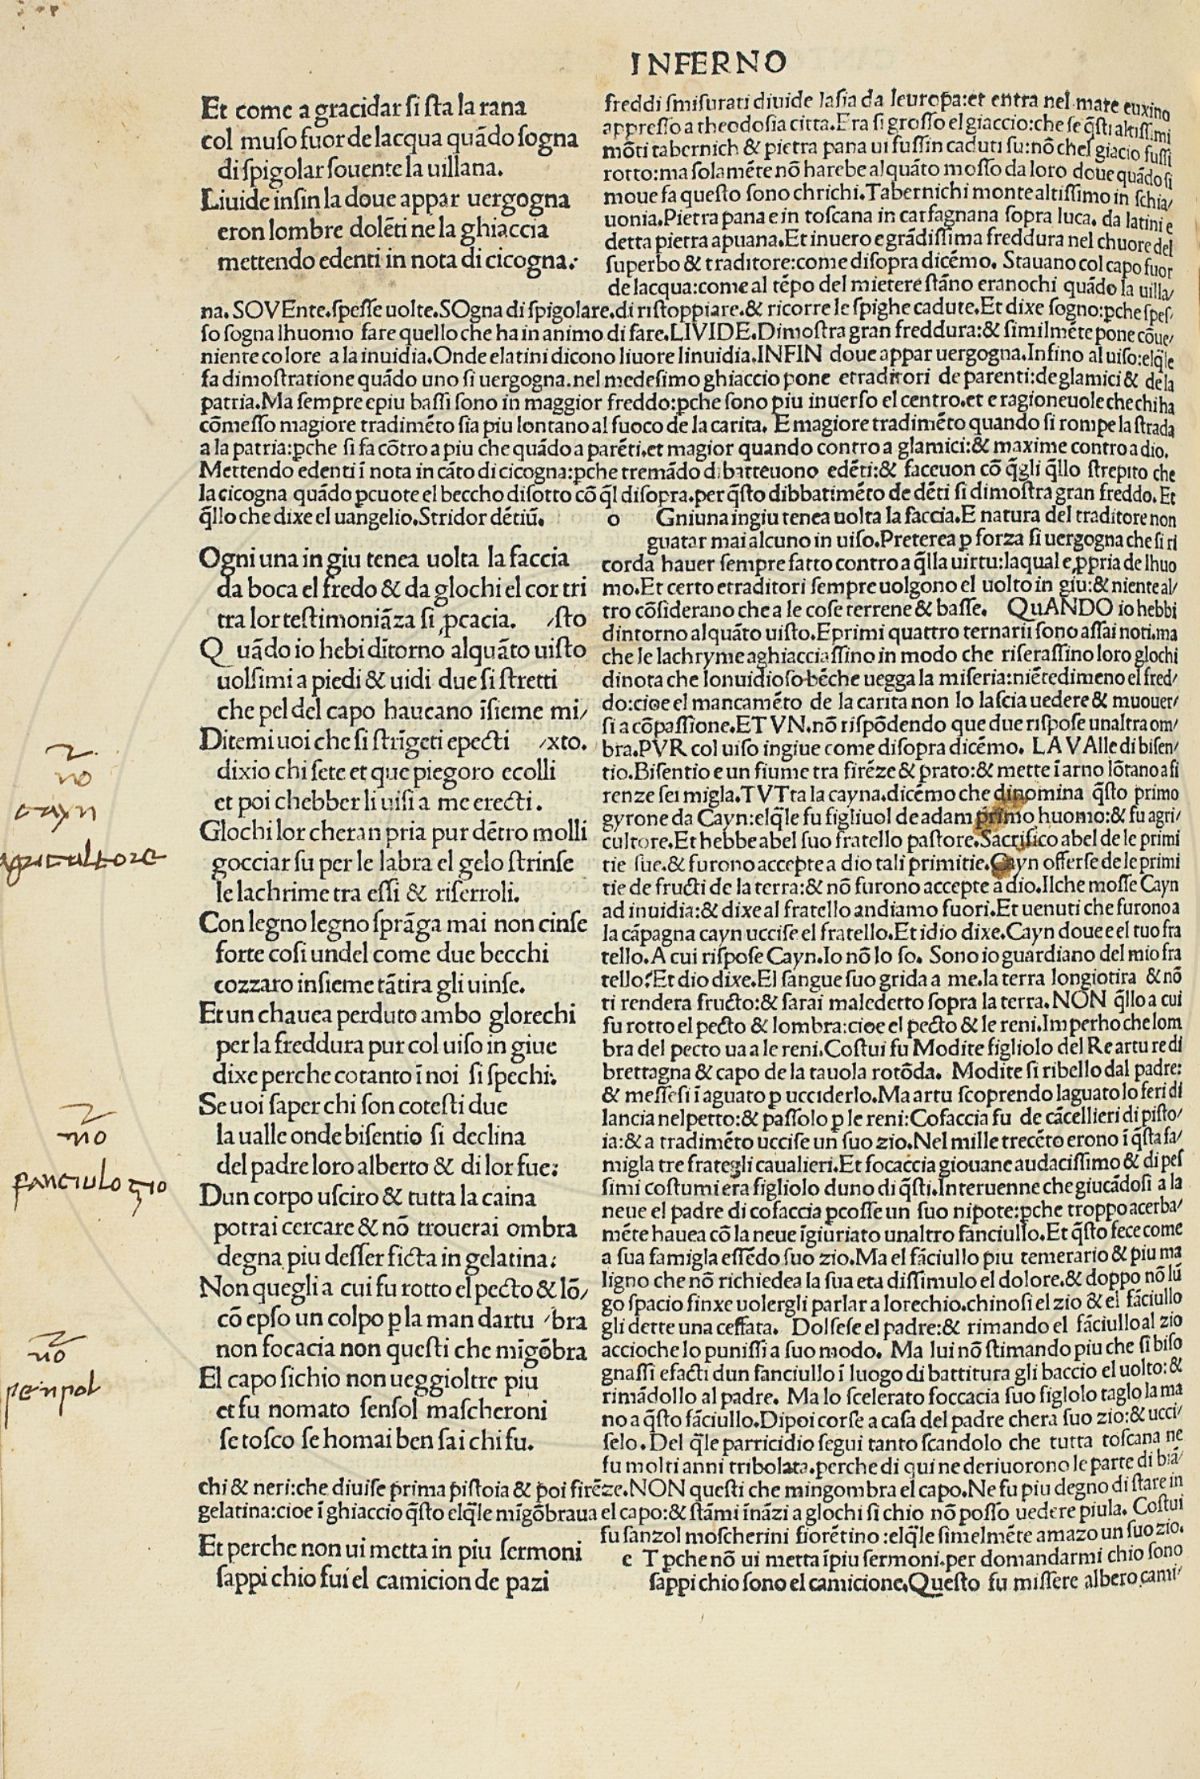 INFERNO
Et come a gracidar si sta la rana
col muso fuor de lacqua quãdo sogna
di spigolar souente la uillana.
Liuide insin la doue appar uergogna
eron lombre dolẽti ne la ghiaccia
mettendo edenti in nota di cicogna:
freddi smisurati diuide lasia da leuropa:et entra nel mare euxino
appresso a theodosia citta.Era si grosso el giaccio:che se q̃sti altissimi
mõti tabernich & pietra pana ui fussin caduti su:nõ chel giacio fussi
rotto:ma solamẽte nõ harebe alquãto mosso da loro doue quãdo si
moue fa questo sono chrichi.Tabernichi monte altissimo in schia/
uonia.Pietra pana e in toscana in carfagnana sopra luca. da latini e
detta pietra apuana.Et inuero e grãdissima freddura nel chuore del
superbo & traditore:come disopra dicẽmo. Stauano col capo fuor
de lacqua:come al tẽpo del mietere stãno eranochi quãdo la uilla/
na. SOVEnte.spesse uolte.SOgna di spigolare.di ristoppiare.& ricorre le spighe cadute.Et dixe sogno:pche spes/
so sogna lhuomo fare quello che ha in animo di fare.LIVIDE.Dimostra gran freddura:& similmẽte pone cõue/
niente colore a la inuidia.Onde elatini dicono liuore linuidia.INFIN doue appar uergogna.Infino al uiso:elq̃le
fa dimostratione quãdo uno si uergogna.nel medesimo ghiaccio pone etraditori de parenti:de glamici & de la
patria.Ma sempre epiu bassi sono in maggior freddo:pche sono piu inuerso el centro.et e ragioneuole che chi ha
cõmesso magiore tradimẽto sia piu lontano al fuoco de la carita. E magiore tradimẽto quando si rompe la strada
a la patria:pche si fa cõtro a piu che quãdo a parẽti.et magior quando contro a glamici:& maxime contro a dio.
Mettendo edenti ĩ nota in cãto di cicogna:pche tremãdo dibatteuono edẽti:& faceuon cõ q̃gli q̃llo strepito che
la cicogna quãdo pcuote el beccho disotto cõ q̃l disopra.per q̃sto dibbatimẽto de dẽti si dimostra gran freddo. Et
q̃llo che dixe el uangelio.Stridor dẽtiũ.
Ogni una in giu tenea uolta la faccia
da boca el fredo & da glochi el cor tri
tra lor testimoniãza si pcacia. /sto
Quãdo io hebi ditorno alquãto uisto
uolsimi a piedi & uidi due si stretti
che pel del capo haueano ĩsieme mi/
Ditemi uoi che si strĩgeti epecti /xto.
dixio chi sete et que piegoro ecolli
et poi chebber li uisi a me erecti.
Glochi lor cheran pria pur dẽtro molli
gocciar su per le labra el gelo strinse
le lachrime tra essi & riserroli.
Con legno legno sprãga mai non cinse
forte cosi undel come due becchi
cozzaro insieme tãtira gli uinse.
Et un chauea perduto ambo glorechi
per la freddura pur col uiso in giue
dixe perche cotanto ĩ noi si spechi.
Se uoi saper chi son cotesti due
la ualle onde bisentio si declina
del padre loro alberto & di lor fue:
Dun corpo usciro & tutta la caina
potrai cercare & nõ trouerai ombra
degna piu desser ficta in gelatina:
Non quegli a cui fu rotto el pecto & lõ/
cõ epso un colpo p la man dartu /bra
non focacia non questi che mĩgõbra
El capo sichio non ueggioltre piu
et fu nomato sensol mascheroni
se tosco se homai ben sai chi fu.
o Gniuna ingiu tenea uolta la faccia.E natura del traditore non
guatar mai alcuno in uiso.Preterea p forza si uergogna che si ri
corda hauer sempre fatto contro a q̃lla uirtu:laqual e ppria de lhuo
mo.Et certo etraditori sempre uolgono el uolto in giu:& niente al/
tro cõsiderano che a le cose terrene & basse. QuANDO io hebbi
dintorno alquãto uisto.Eprimi quattro ternarii sono assai noti.ma
che le lachryme aghiacciassino in modo che riserassino loro glochi
dinota che lonuidioso bẽche uegga la miseria:niẽtedimeno el fred/
do:cioe el mancamẽto de la carita non lo lascia uedere & muouer/
si a cõpassione.ETVN.nõ rispõdendo que due rispose unaltra om/
bra.PVR col uiso ingiue come disopra dicẽmo. LAVAlle di bisen/
tio.Bisentio e un fiume tra firẽze & prato:& mette ĩ arno lõtano a fi
renze sei migla.TVTta la cayna.dicẽmo che dinomina q̃sto primo
gyrone da Cayn:elq̃le fu figliuol de adam primo huomo:& fu agri/
cultore.Et hebbe abel suo fratello pastore.Sacrifico abel de le primi
tie sue.& furono accepte a dio tali primitie.Cayn offerse de le primi
tie de fructi de la terra:& nõ furono accepte a dio.Ilche mosse Cayn
ad inuidia:& dixe al fratello andiamo fuori.Et uenuti che furono a
la cãpagna cayn uccise el fratello.Et idio dixe.Cayn doue e el tuo fra
tello.A cui rispose Cayn.Io nõ lo so. Sono io guardiano del mio fra
tello?Et dio dixe.El sangue suo grida a me.la terra longiotira & nõ
ti rendera fructo:& sarai maledetto sopra la terra.NON q̃llo a cui
fu rotto el pecto & lombra:cioe el pecto & le reni.Imperho che lom
bra del pecto ua a le reni.Costui fu Modite figliolo del Re artu re di
brettagna & capo de la tauola rotõda. Modite si ribello dal padre:
& messesi ĩ aguato p ucciderlo.Ma artu scoprendo laguato lo feri di
lancia nel petto:& passolo p le reni:Cofaccia fu de cãcellieri di pisto/
ia:& a tradimẽto uccise un suo zio.Nel mille trecẽto erono ĩ q̃sta fa/
migla tre frategli caualieri.Et focaccia giouane audacissimo & di pes
simi costumi era figliolo duno di q̃sti.Interuenne che giucãdosi a la
neue el padre di cofaccia pcosse un suo nipote:pche troppo acerba/
mẽte hauea cõ la neue ĩgiuriato unaltro fanciullo.Et q̃sto fece come
a sua famigla essẽdo suo zio.Ma el fãciullo piu temerario & piu ma
ligno che nõ richiedea la sua eta dissimulo el dolore.& doppo nõ lũ
go spacio finxe uolergli parlar a lorechio.chinosi el zio & el fãciullo
gli dette una ceffata. Dolsese el padre:& rimando el fãciullo al zio
accioche lo punissi a suo modo. Ma lui nõ stimando piu che si biso
gnassi efacti dun fanciullo ĩ luogo di battitura gli baccio el uolto:&
rimãdollo al padre. Ma lo scelerato foccacia suo figlolo taglo la ma
no a q̃sto fãciullo.Dipoi corse a casa del padre chera suo zio:& ucci/
selo. Del q̃le parricidio segui tanto scandolo che tutta toscana ne
fu molti anni tribolata.perche di qui ne deriuorono le parte di biã/
chi & neri:che diuise prima pistoia & poi firẽze.NON questi che mingombra el capo.Ne fu piu degno di stare in
gelatina:cioe ĩ ghiaccio q̃sto elq̃le mĩgõbraua el capo:& stãmi ĩnãzi a glochi si chio nõ posso uedere piula. Costui
fu sanzol moscherini fiorẽtino:elq̃le simelmẽte amazo un suo zio.
Et perche non ui metta in piu sermoni
sappi chio fui el camicion de pazi
e T pche nõ ui metta ĩpiu sermoni.per domandarmi chio sono
sappi chio sono el camicione.Questo fu missere albero cami/
no
cayn
agricultore
no
fanciulo
no